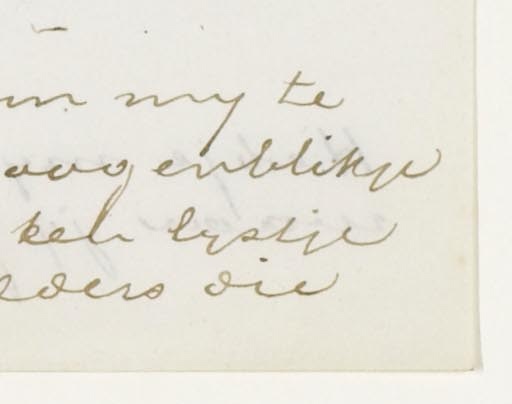 in my te
oogenblikje
kek lystje
ders die